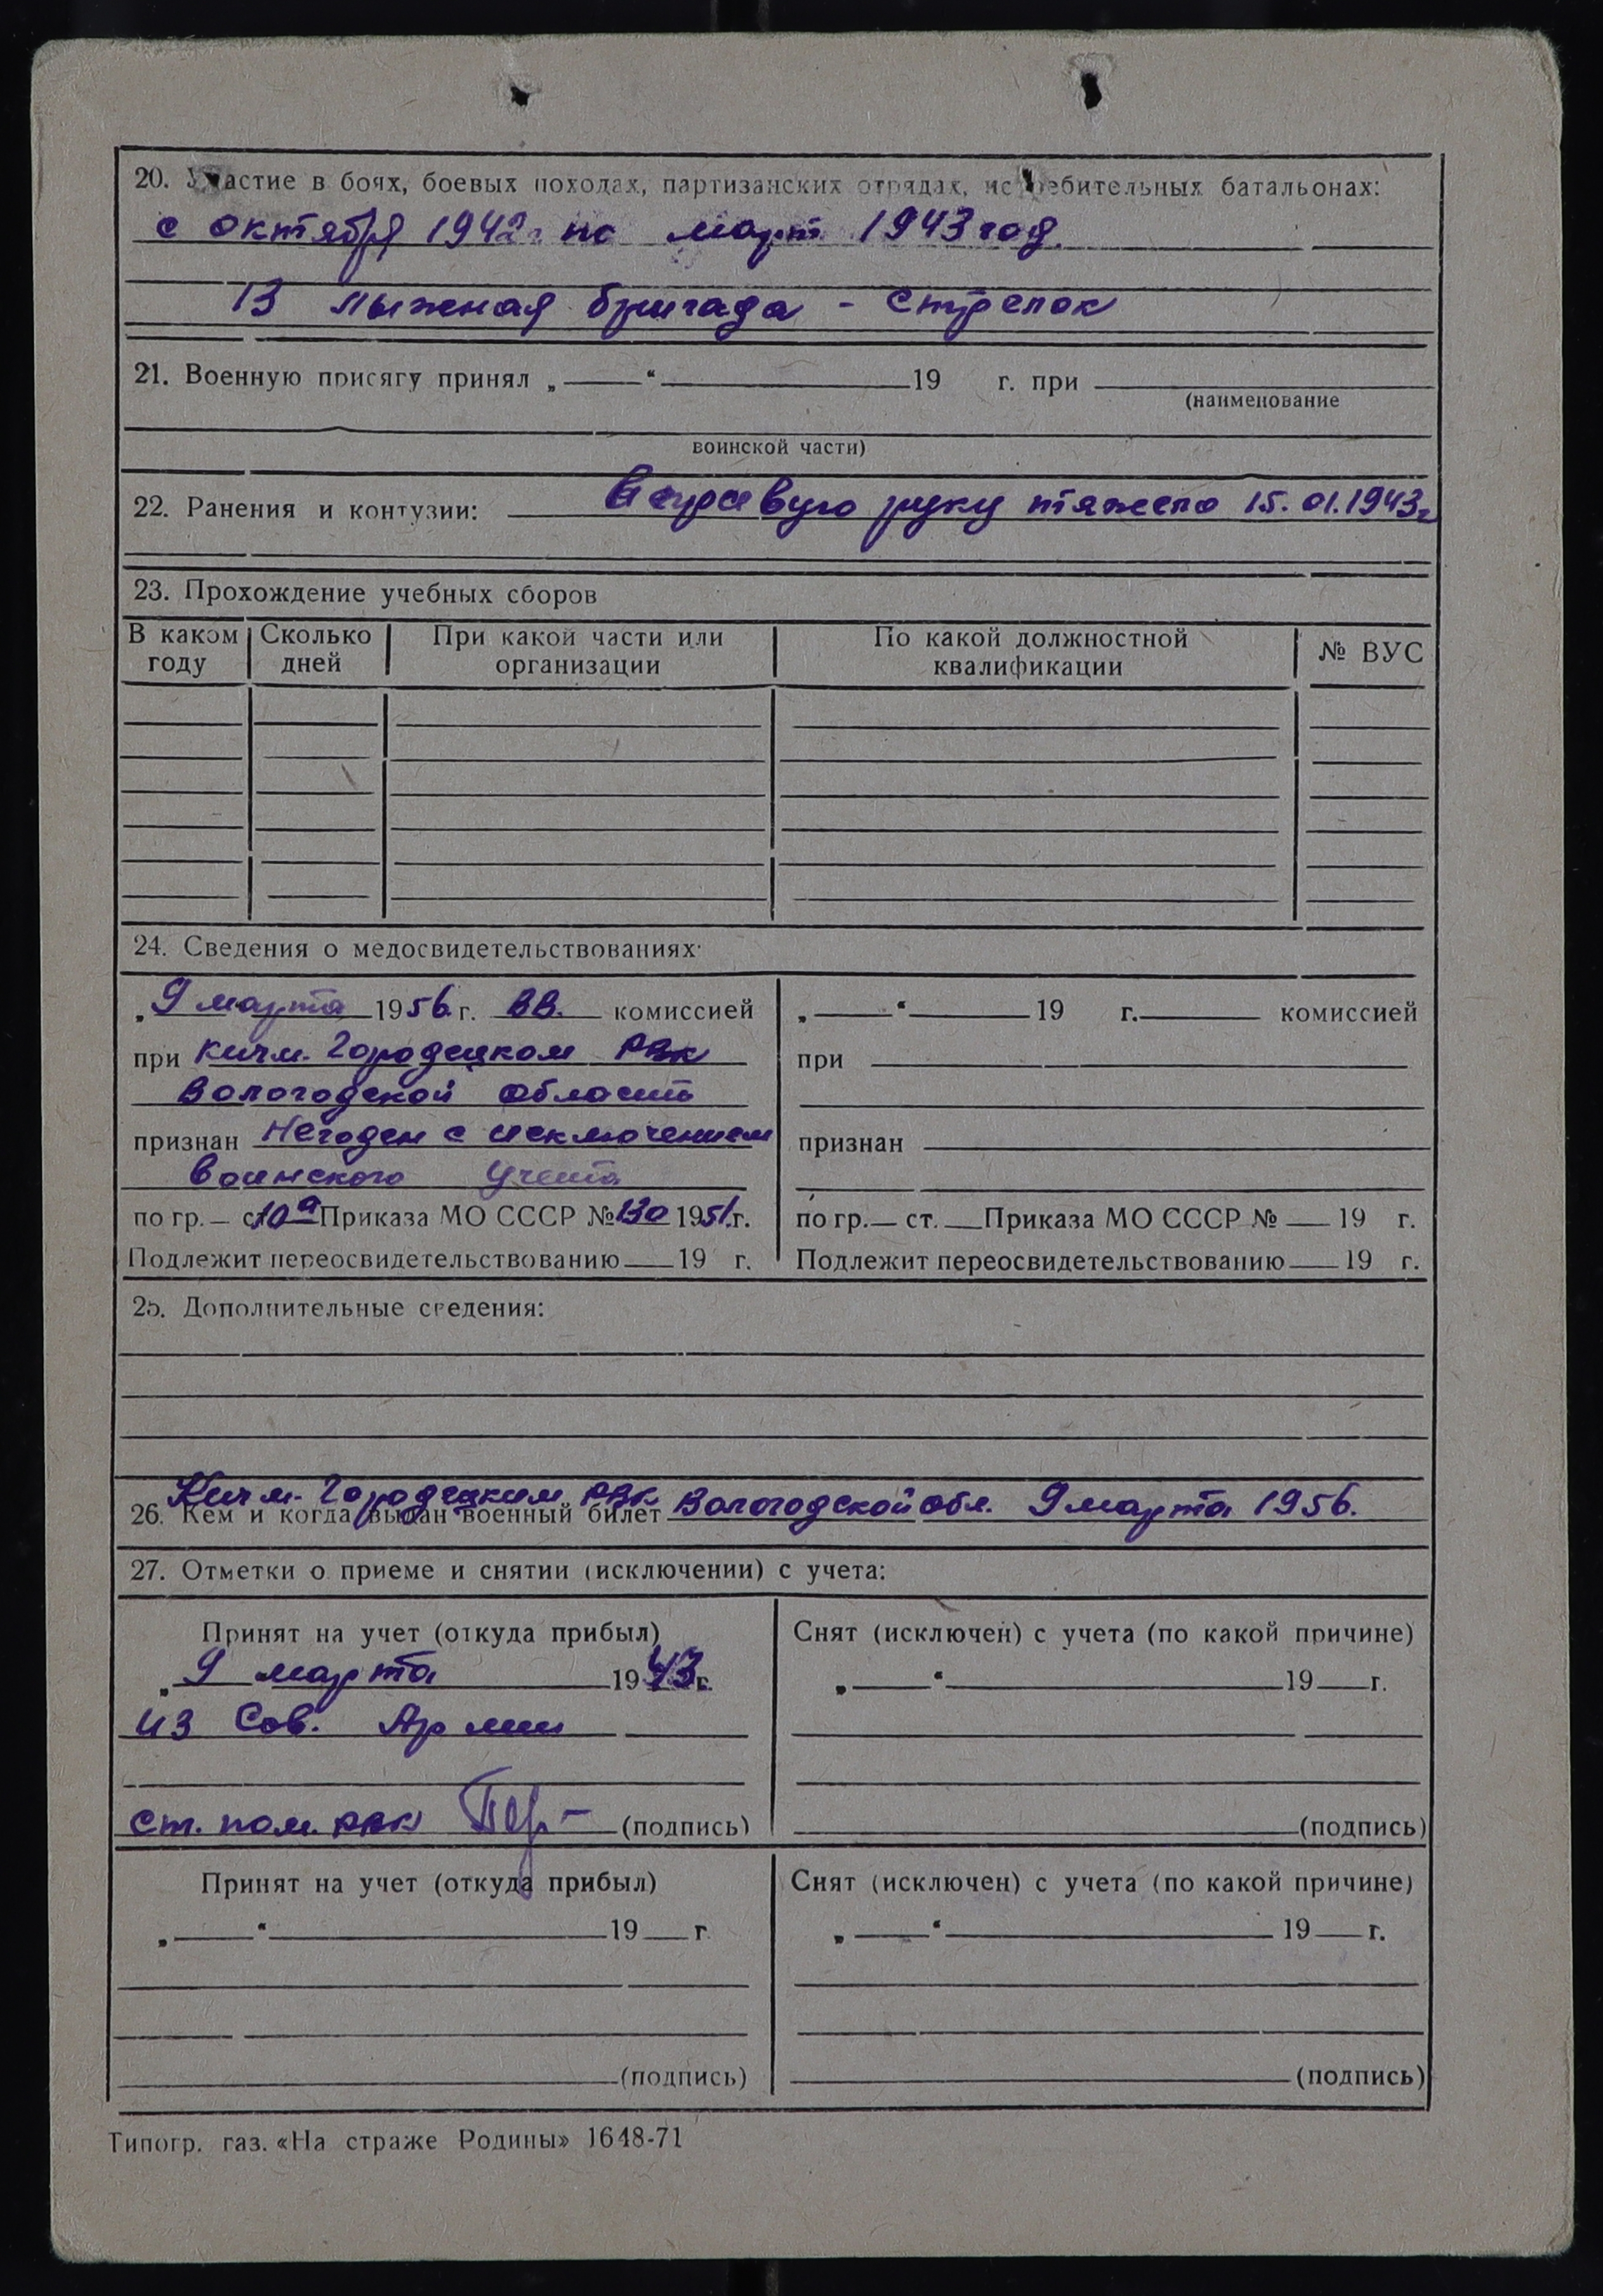 20. Участие в боях, боевых походах, партизанских отрядах, истребительных батальонах:
с октября 1942г по март 1943 год.
13 лыжная бригада - стрелок
21. Военную присягу принял „ “ 19 г. при
(наименование
воинской части)
22. Ранения и контузии: В правую руку тяжело 15.01.1943г
23. Прохождение учебных сборов
В каком году Сколько дней При какой части или организации По какой должностной квалификации № ВУС
24. Сведения о медосвидетельствованиях:
„9 марта 1956 г. ВВ. комиссией
при Кичм. Городецком РВК
Вологодской области
признан Негоден с исключением
воинского учета
по гр. — ст 10а Приказа МО СССР № 130 1951 г.
Подлежит переосвидетельствованию 19 г.
„ “ 19 г. комиссией
при
признан
по гр. — ст. Приказа МО СССР № 19 г.
Подлежит переосвидетельствованию 19 г.
25. Дополнительные сведения:
Кичм. Городецким РВК
26. Кем и когда выдан военный билет Вологодской обл. 9 марта 1956.
27. Отметки о приеме и снятии (исключении) с учета:
Принят на учет (откуда прибыл)
„9 марта 1943 г.
из Сов. Армии
ст. пом. РВК (подпись)
Снят (исключен) с учета (по какой причине)
„ “ 19 г.
(подпись)
Принят на учет (откуда прибыл)
„ “ 19 г.
(подпись)
Снят (исключен) с учета (по какой причине)
„ “ 19 г.
(подпись)
Типогр. газ. «На страже Родины» 1648-71